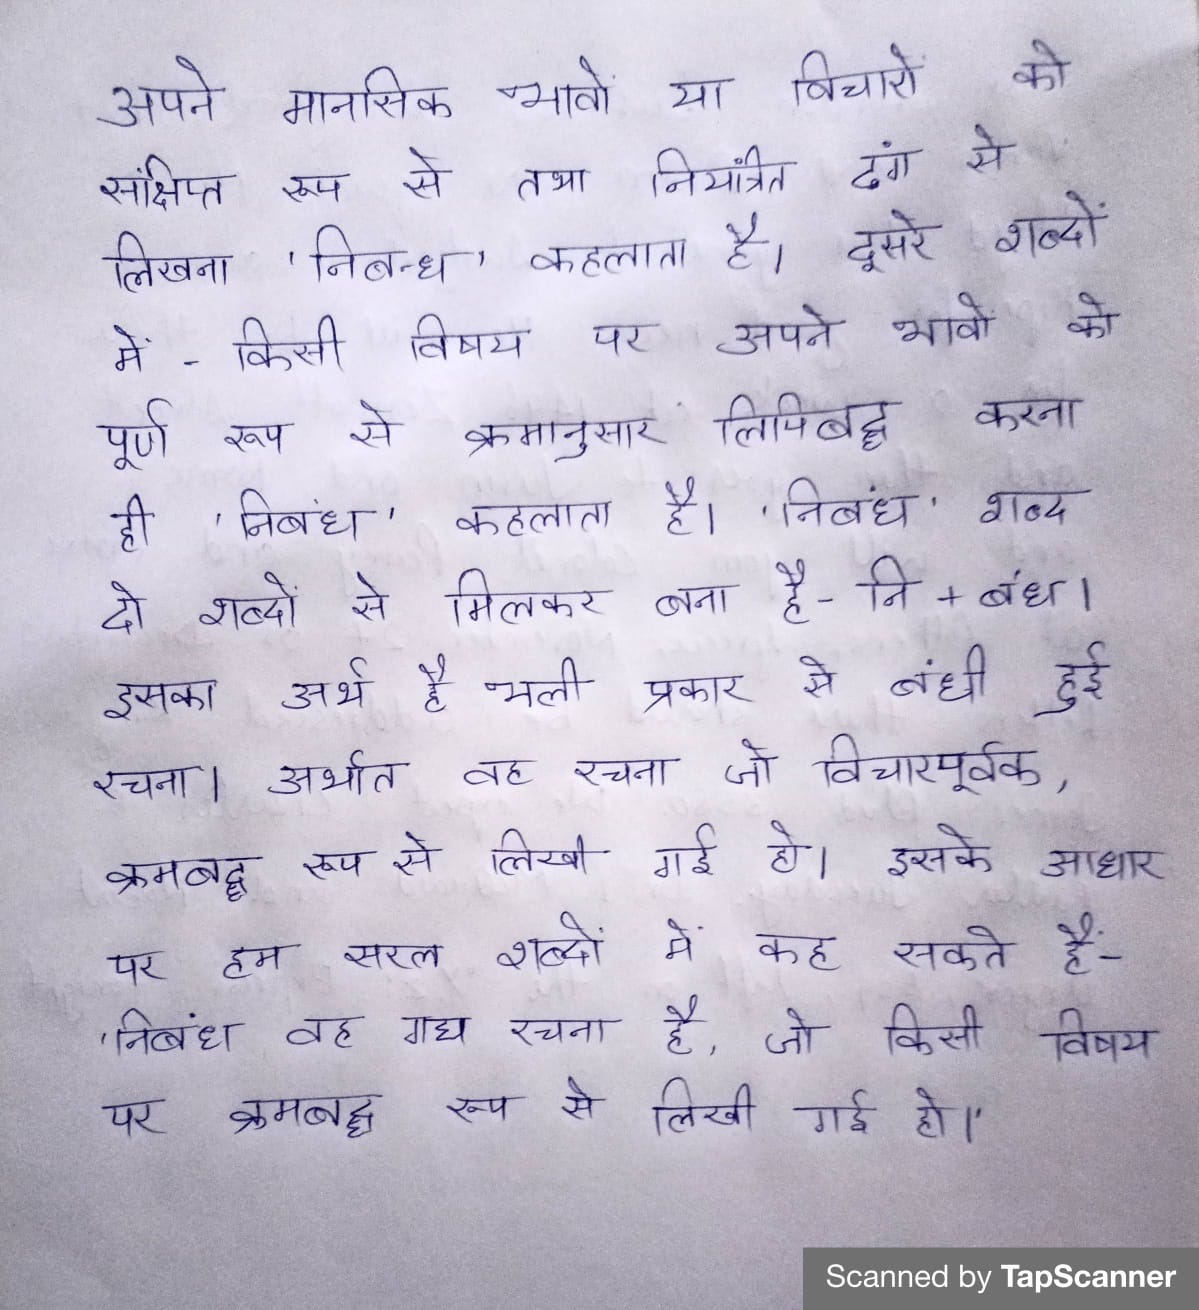 अपने मानसिक भावों या विचारों को
संक्षिप्त रूप से तथा नियंत्रित ढंग से
लिखना 'निबन्ध' कहलाता है। दूसरे शब्दों
में - किसी विषय पर अपने भावों को
पूर्ण रूप से क्रमानुसार लिपिबद्ध करना
ही 'निबंध' कहलाता है। 'निबंध' शब्द
दो शब्दों से मिलकर बना है- नि + बंध।
इसका अर्थ है भली प्रकार से बंधी हुई
रचना। अर्थात वह रचना जो विचारपूर्वक,
क्रमबद्ध रूप से लिखी गई हो। इसके आधार
पर हम सरल शब्दों में कह सकते हैं-
'निबंध वह गद्य रचना है, जो किसी विषय
पर क्रमबद्ध रूप से लिखी गई हो।'
Scanned by TapScanner